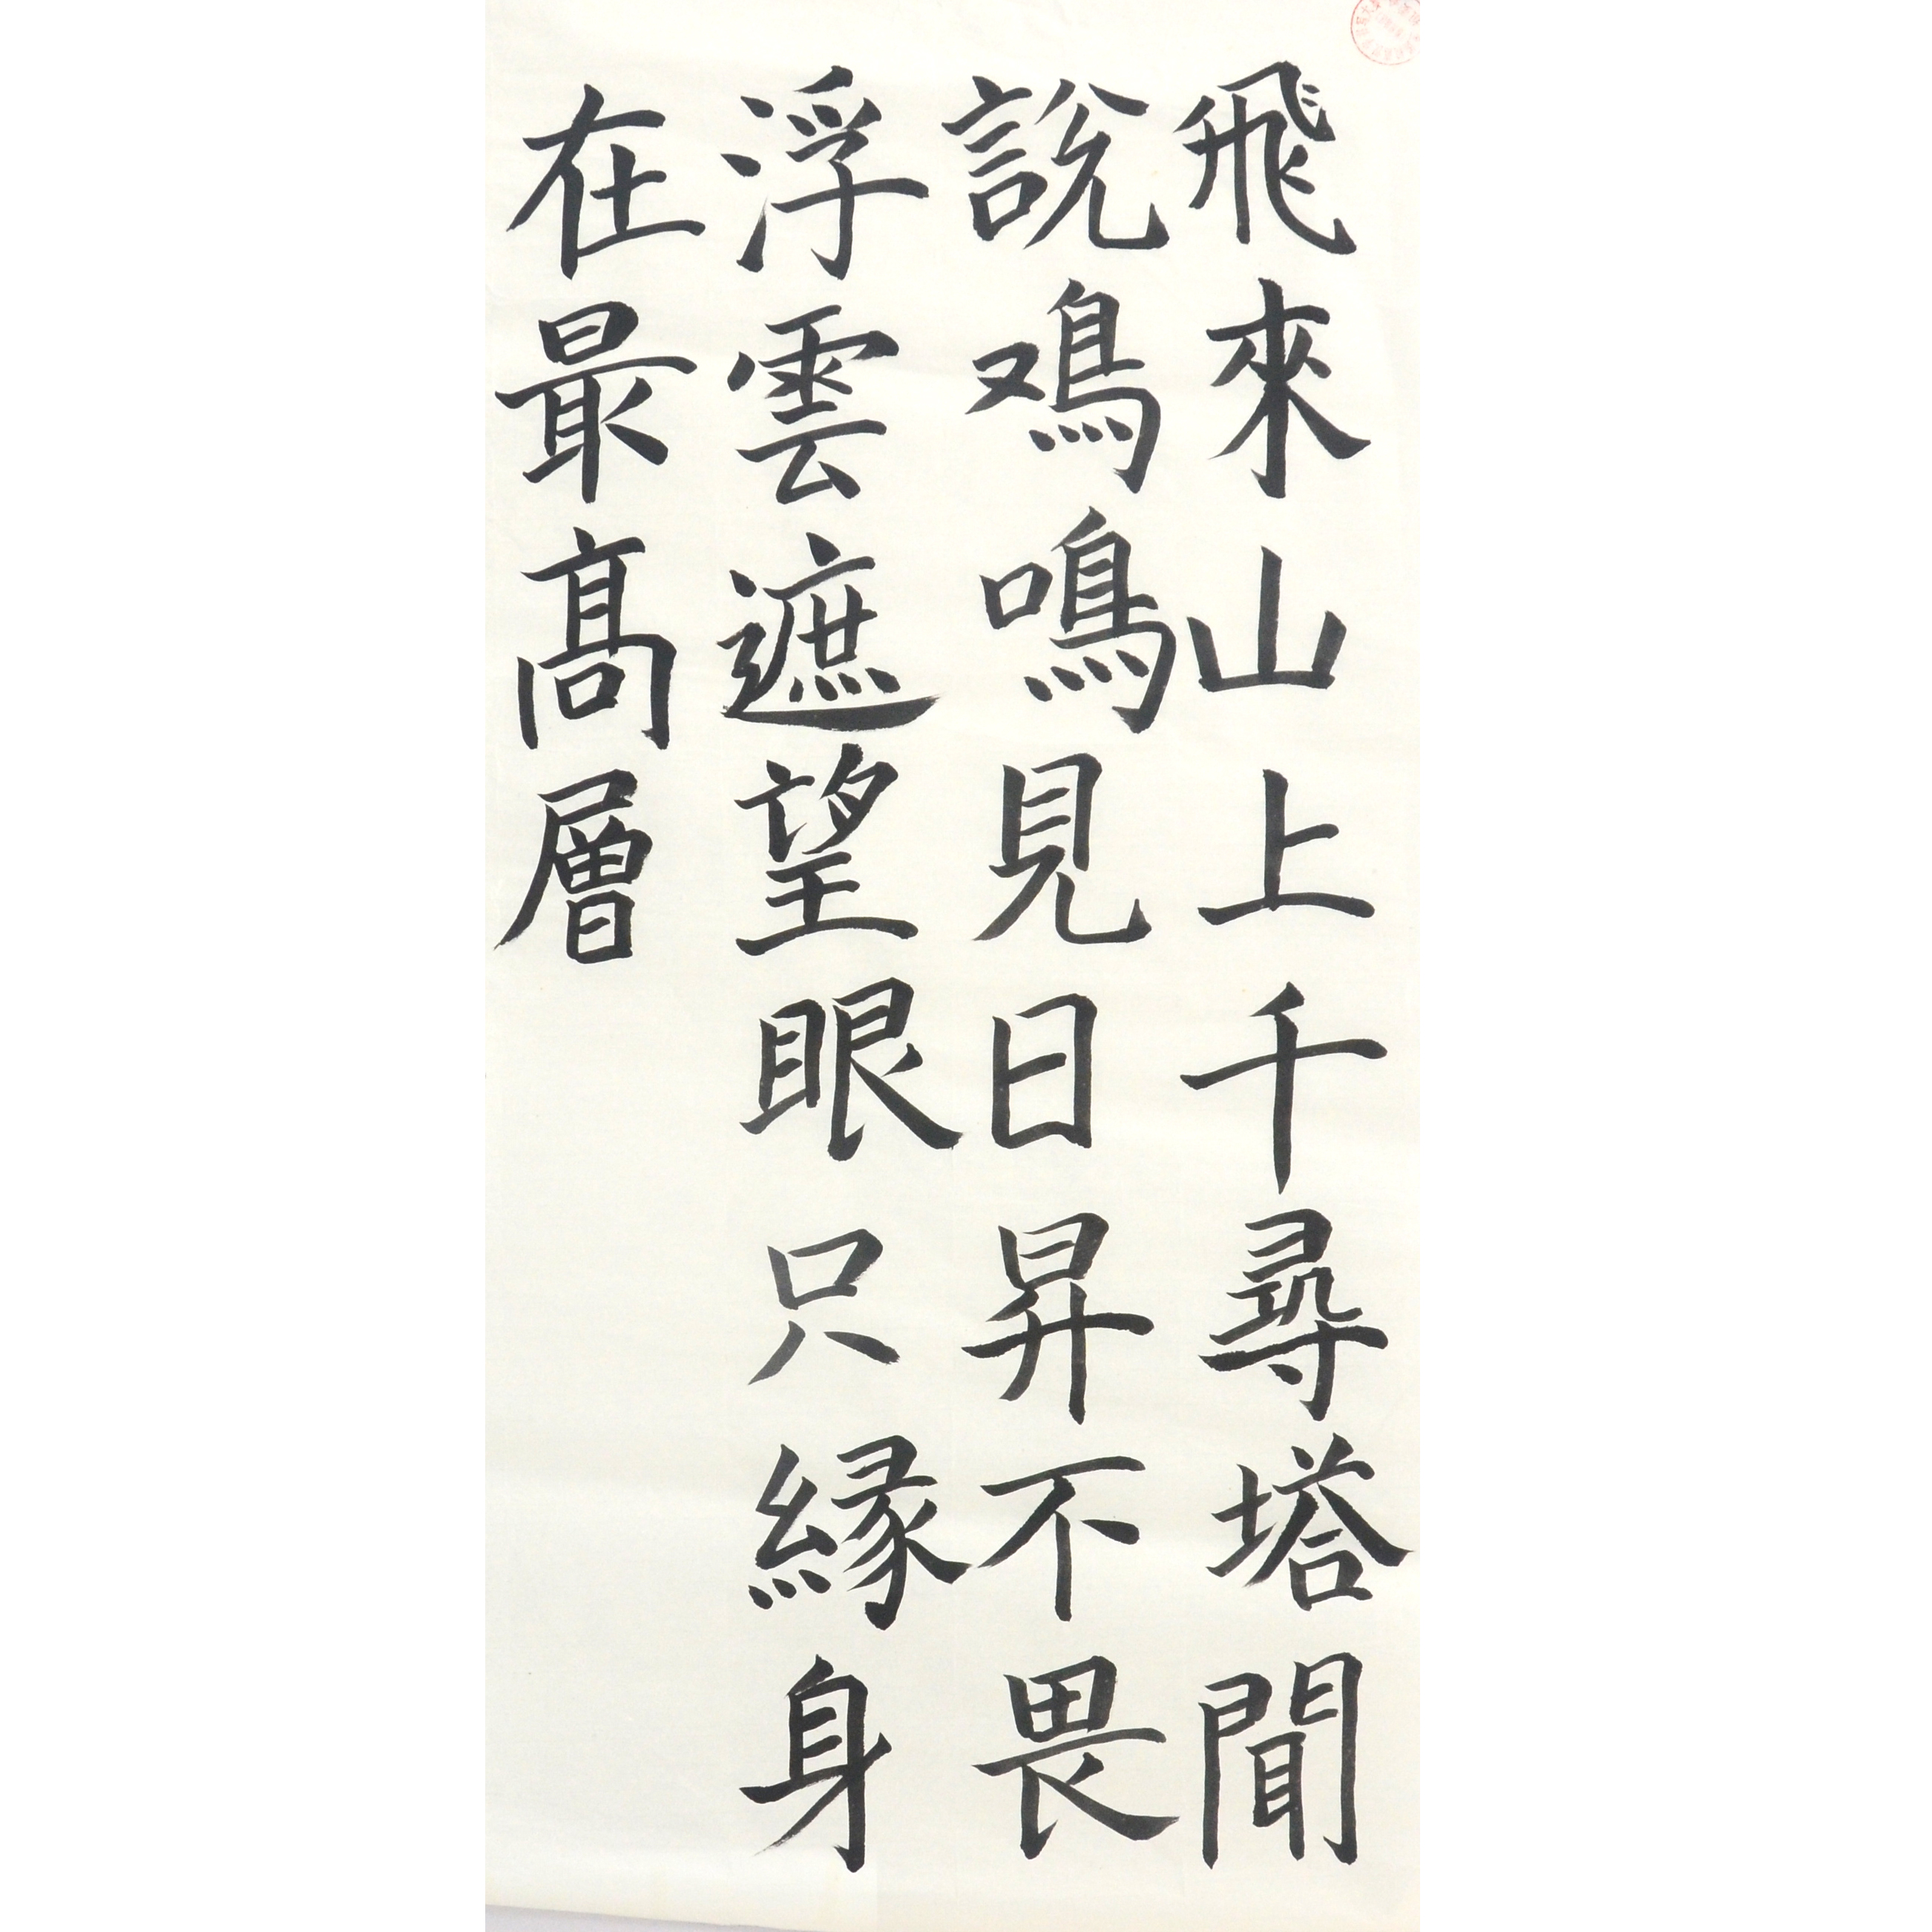 飛來山上千尋塔聞
說鳮鳴見日昇不畏
浮雲遮望眼只緣身
在最髙層